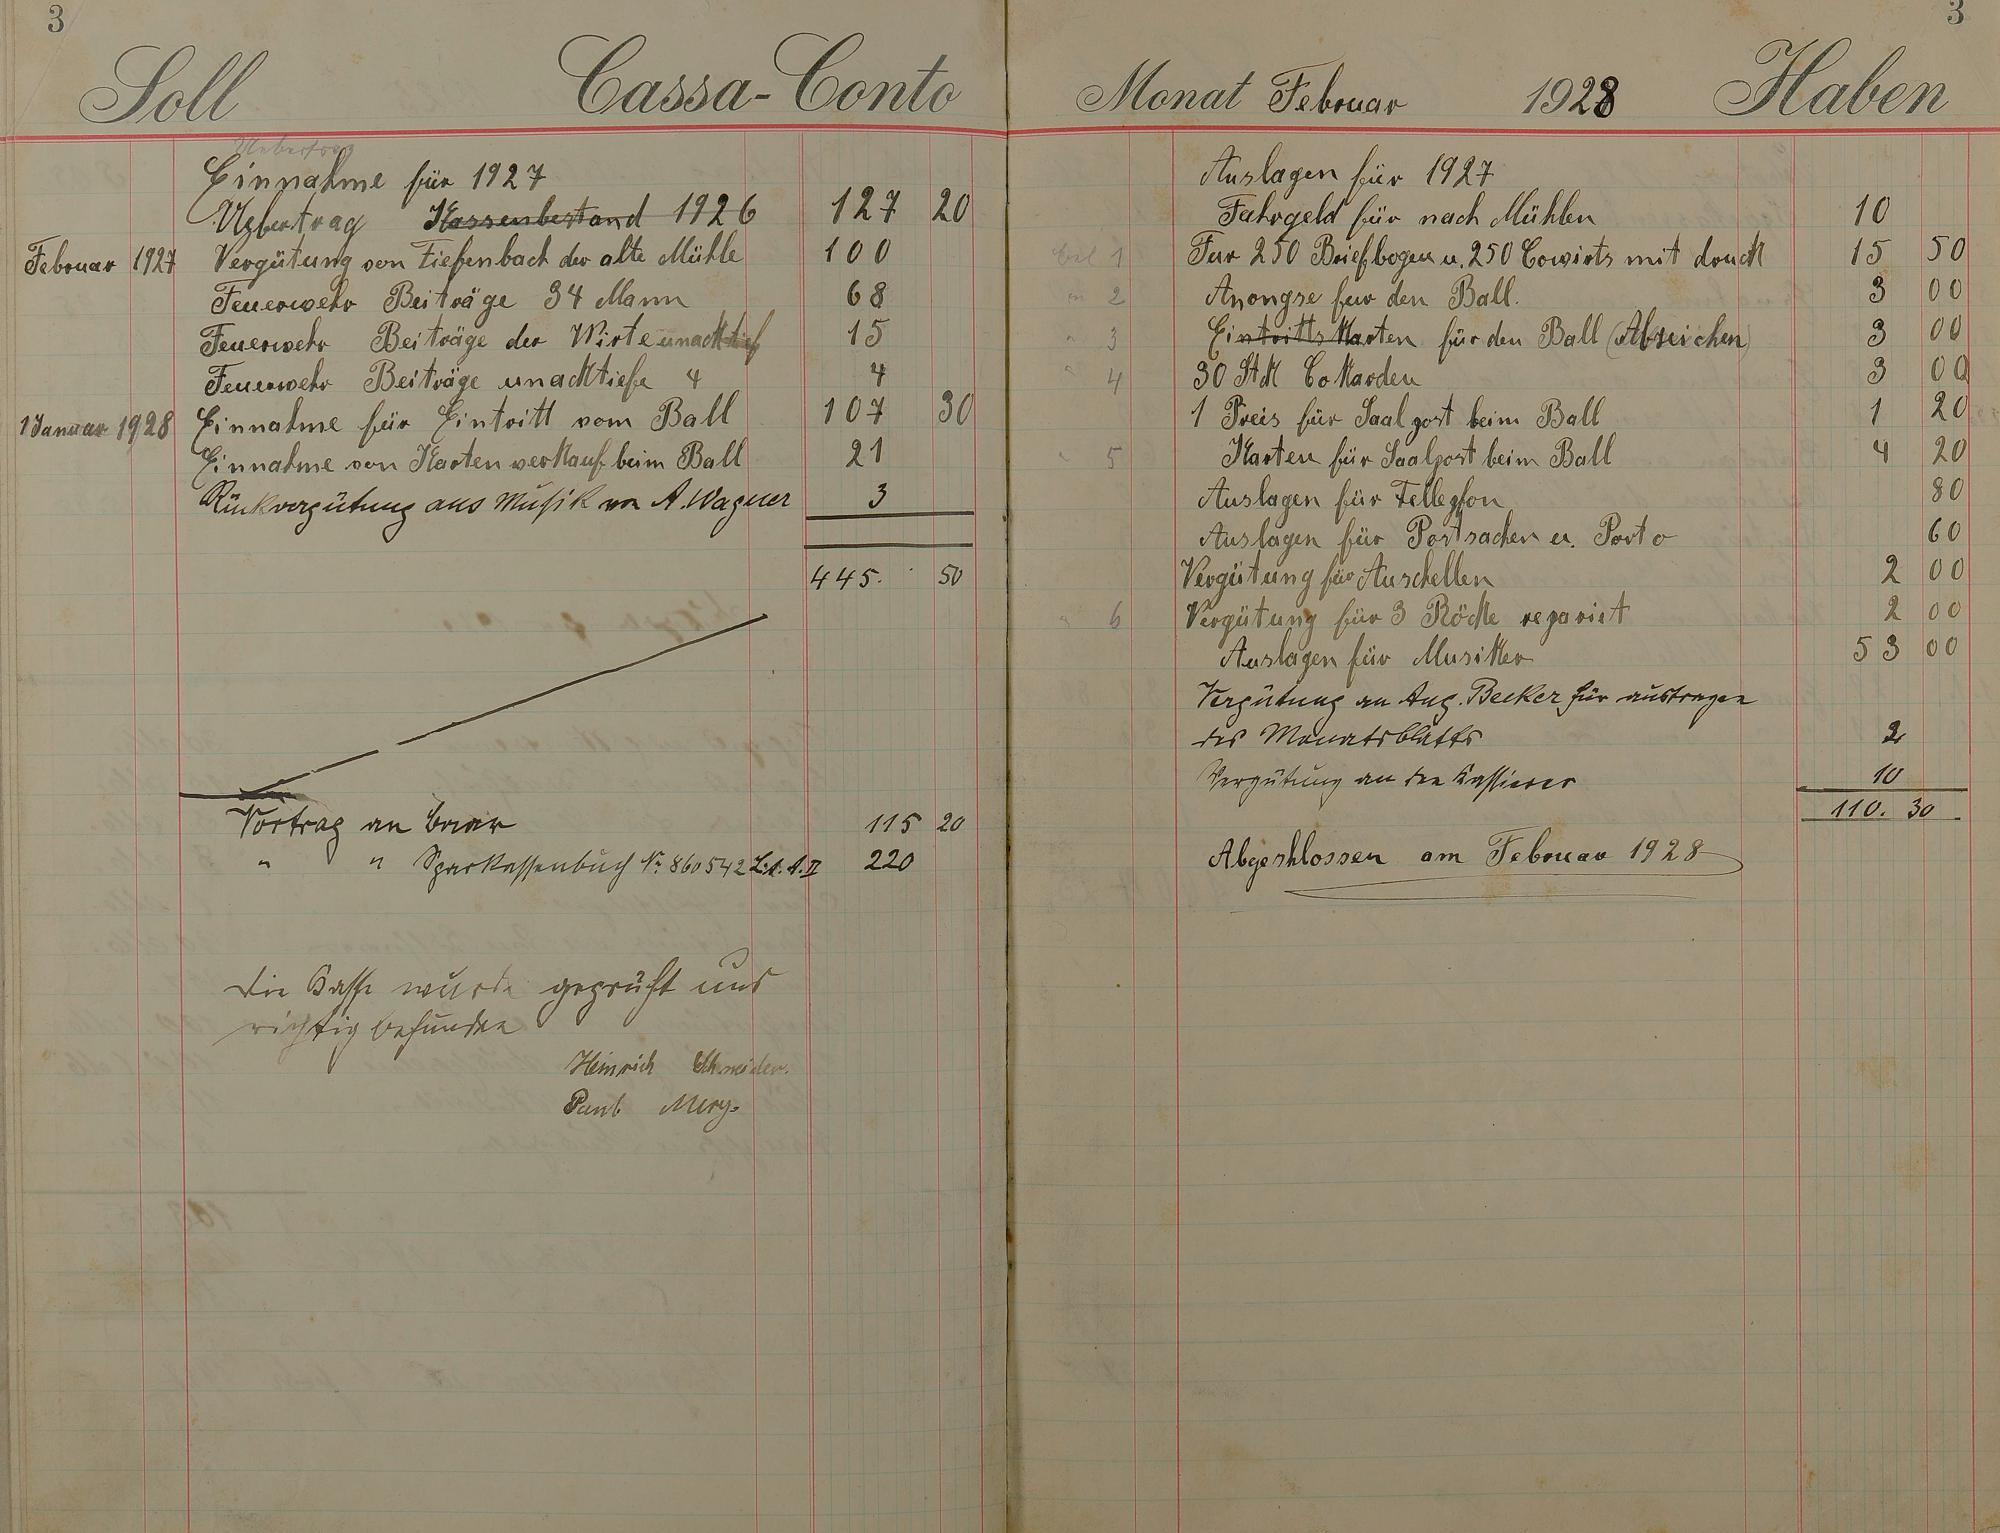 3
Soll Cassa-Conto
Uebertrag
Einnahme für 1927
Uebertrag Kassenbestand 1926 127 20
Februar 1927 Vergütung von Tiefenbach der alte Mühle 100
Feuerwehr Beiträge 34 Mann 68
Feuerwehr Beiträge der Wirte unacktief 15
Feuerwehr Beiträge unacktiefe 4 4
1 Januar 1928 Einnahme für Eintritt vom Ball 107 30
Einnahme von Karten verkauf beim Ball 21
Rückvergütung aus Musik von A. Wagner 3
445. 50
Vortrag an baar 115 20
" " Sparkassenbuch Nr. 860542 Lit. A. II 220
Die Kasse wurde geprüft und
richtig befunden
Heinrich Schneider.
Paul
3
Monat Februar 1928 Haben
Auslagen für 1927
Fahrgeld für nach Mühlen 10
Bel 1 Fur 250 Briefbogen u. 250 Cowirts mit druck 15 50
" 2 Anongse fur den Ball. 3 00
" 3 Eintritts Karten für den Ball (Abzeichen) 3 00
" 4 30 Stk Cokarden 3 00
1 Preis für Saalpost beim Ball 1 20
" 5 Karten für Saalpost beim Ball 4 20
Auslagen für Tellepfon 80
Auslagen für Postsachen u. Porto 60
Vergütung für Auschellen 2 00
" 6 Vergütung für 3 Röcke repariet 2 00
Auslagen für Musiker 53 00
Vergütung an Aug. Becker für austragen
des Monatsblatts 2
Vergütung an den Kassierer 10
110. 30
Abgeshlossen am Februar 1928